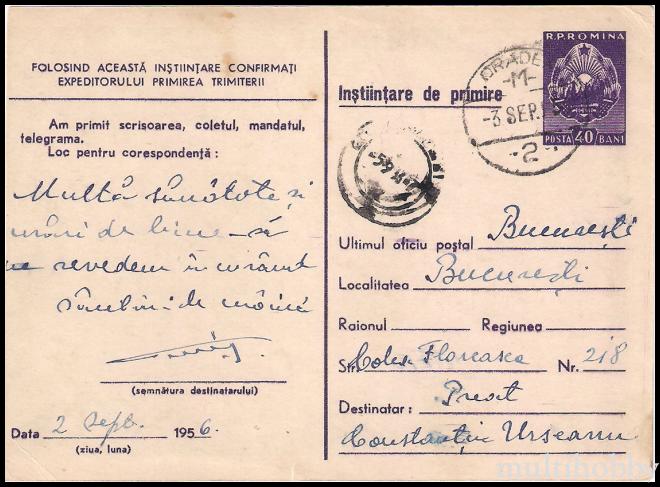 FOLOSIND ACEASTĂ INȘTIINȚARE CONFIRMAȚI
EXPEDITORULUI PRIMIREA TRIMITERII
Am primit scrisoarea, coletul, mandatul,
telegrama.
Loc pentru corespondență :
Multă sănătate și
urări de bine să
ne revedem în curând
(semnătura destinatarului)
Data 2 Sept. 1956.
(ziua, luna)
R.P. ROMINA
POSTA 40 BANI
Inștiințare de primire
ORADEA
-M-
-3 SEP.
·2·
Ultimul oficiu poștal București
Localitatea București
Raionul Regiunea
Str. Floreasca Nr. 218
Destinatar : Preot
Constantin Urseanu
multihobby